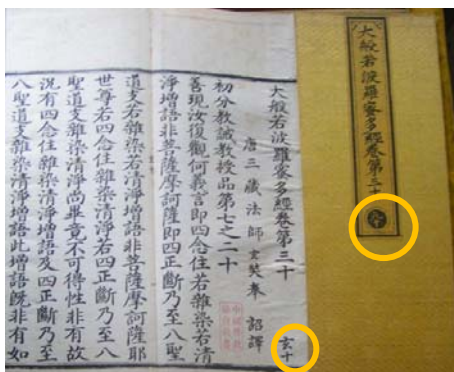 大般若波羅蜜多經卷第三十
大般若波羅蜜多經卷第三十 玄十
唐三藏法師玄奘奉 詔譯
初分教誡教授品第七之二十
善現汝復觀何義言即四念住若雜染若清
淨增語非菩薩摩訶薩即四正斷乃至八聖
道支若雜染若清淨增語非菩薩摩訶薩耶
世尊若四念住雜染清淨若四正斷乃至八
聖道支雜染清淨尚畢竟不可得性非有故
況有四念住雜染清淨增語及四正斷乃至
八聖道支雜染清淨增語此增語既非有如